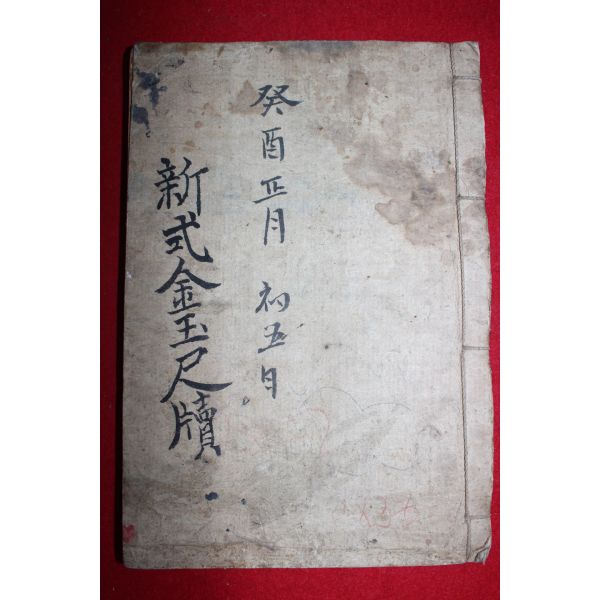 癸酉正月 初五日
新式金玉尺牘